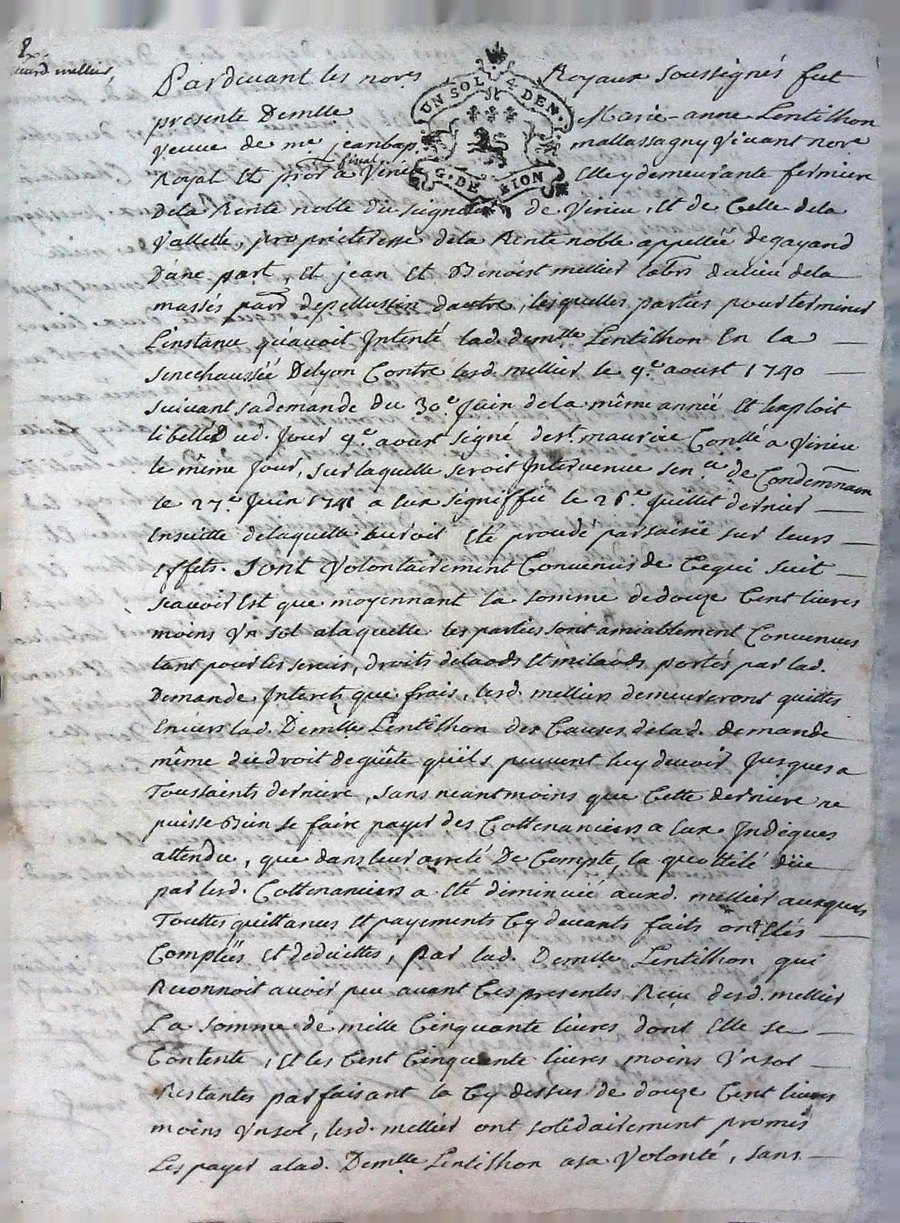 Ex.
mellier,
UN SOL 4 DEN.
G. DE LION
Pardevant les nores Royaux soussignés fut
presente Demlle Marie-anne Lentilhon
veuve de me jeanbap. mallassagny vivant nore
Royal Et procr a Virieu Elle y demeurante fermiere
dela Rente noble du seigneur de Virieu, Et de Celle dela
Vallette, proprieteresse dela Rente noble appellée de gayand
D'une part, Et jean Et Benoist mellier labrs dulieu dela
massés parr depellussin dautre, lesquelles parties pour terminer
L'instance qu'avoit Intenté lad. demlle Lentilhon En la
senechaussée Delyon Contre lesd. mellier le 9e. aoust 1740
suivant sa demande du 30e. Juin dela même année Et Exploit
libellé dud. Jour 9e. aoust signé de st. maurice Contlé a Virieu
le même Jour, sur laquelle seroit Intervenue sence de Condemnaon
le 27e. Juin 1741 a Eux signiffié le 26e. Juillet dernier
Ensuitte delaquelle auroit Eté procedé par saisie sur leurs
Effets. Sont Volontairement Convenus de Cequi suit
scavoir Est que moyennant la somme dedouze Cent livres
moins Un sol alaquelle les parties sont amiablement Convenues
tant pour les servis, droits delaods Et milaods portés par lad.
Demande, Interets que frais, lesd. melliers demeureront quittes
Envers lad. Demlle Lentilhon des Causes delad. demande
même du droit de guête quils peuvent luy devoir Jusques a
Toussaints derniere, sans neantmoins que Cette derniere ne
puisse Bien se faire payer des Cottenanciers a Eux Indiqués
attendu, que dans leur arreté De Compte, la quottité düe
par lesd. Cottenanciers a Eté diminuée auxd. mellier auxquels
Touttes quittances Et payements Cy devants faits ont Etés
Comptés Et deduittes, par lad. Demlle Lentilhon qui
Reconnoit avoir peu avant Ces presentes Reçu desd. mellier
La somme de mille Cinquante livres dont Elle se
Contente, Et les Cent Cinquante livres moins Un sol
Restantes parfaisant la Cy dessus de douze Cent livres
moins Un sol, lesd. mellier ont solidairement promis
Les payer alad. Demlle Lentilhon asa Volonté, sans